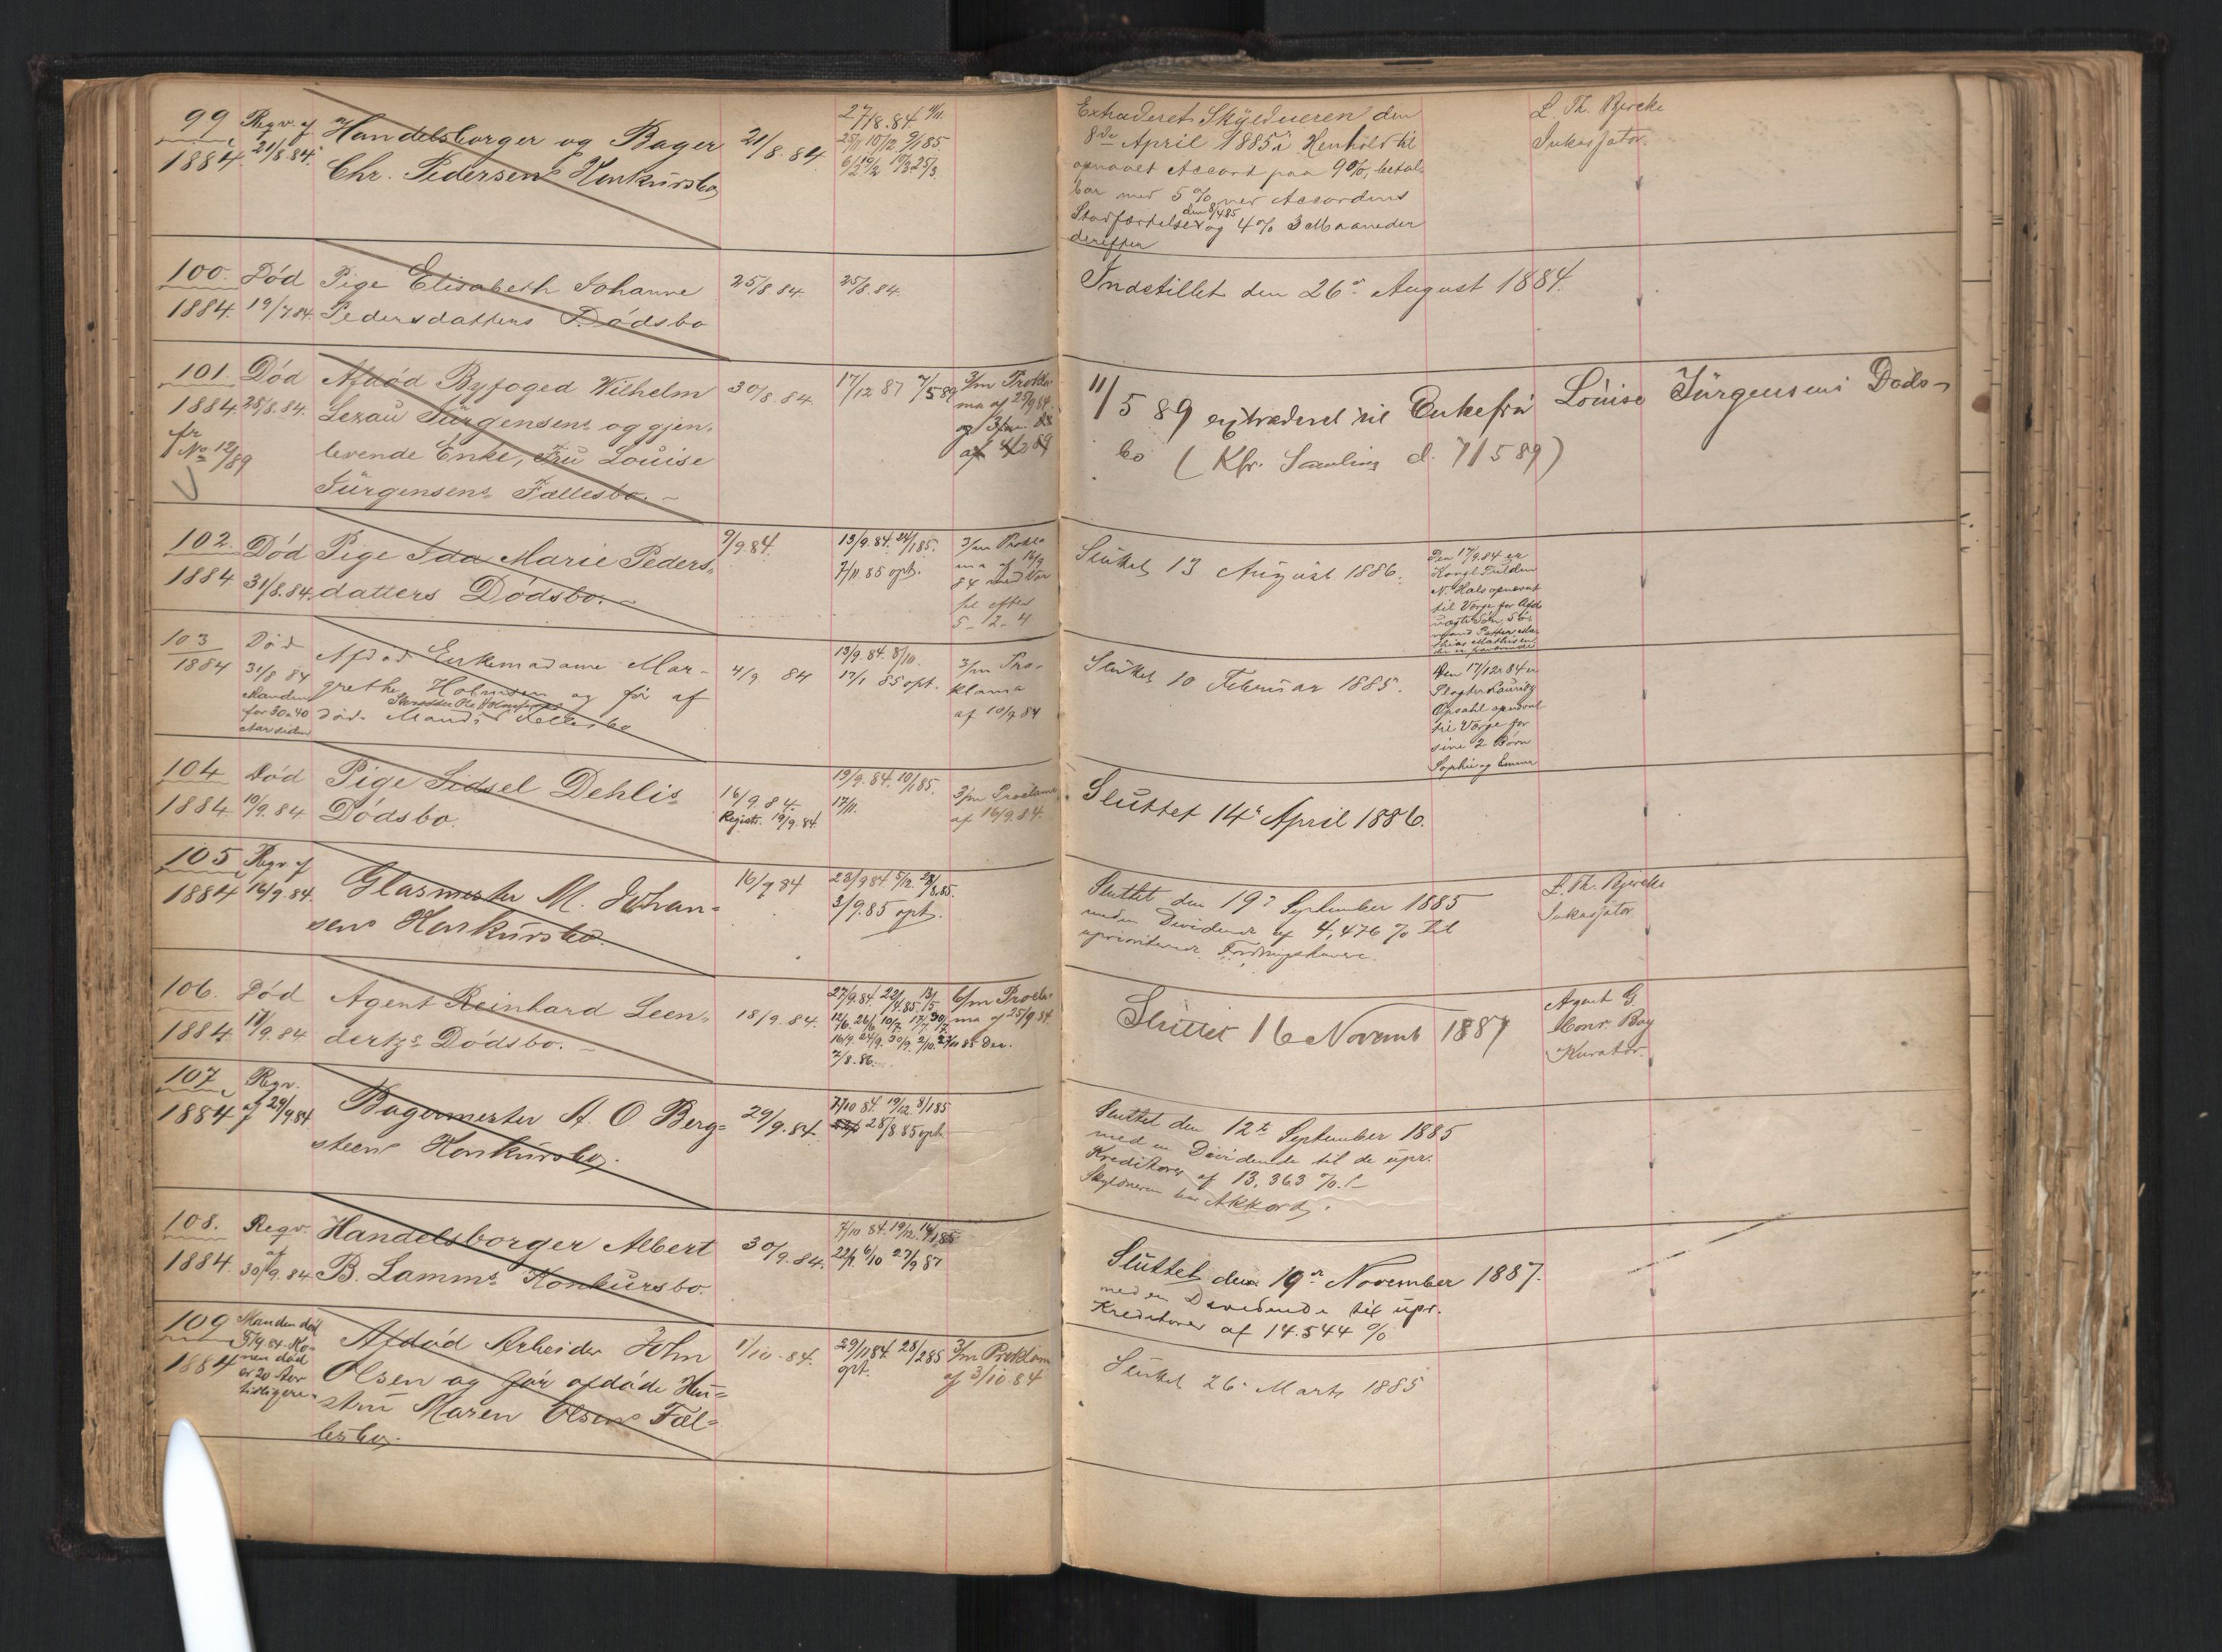 99
1884.
Reqv. af
21/8.84.
Handelsborger og Bager
Chr. Pedersens Konkursbo
21/8.84
27/8.84. 4/11.
25/11 10/12 9/1 85
Extraderet Skyldneren den
8de April 1885 i Henhold til
opnaaet Accord paa 9%, betal-
bar med 5% ved Accordens
Stadfæstelse den 8/4 85 og 4% 3 Maaneder
derefter
L. Th. Bjercke
Inkassator.
100.
1884.
Død
19/7.84.
Pige Elisabeth Johanne
Pedersdatters Dødsbo
25/8.84.
25/8.84.
Indstillet den 26de August 1884.
101.
1884.
fr
No 12/89
Død
25/8.84.
Afdød Byfoged Wilhelm
Lezau Jürgensens og gjen-
levende Enke, Fru Louise
Jürgensens Fællesbo.
30/8.84.
17/12 87 7/5 89
3/m Prokla-
ma af 27/9 84
11/5 89 extraderet til Enkefru Louise Jürgensens Døds-
bo (Kfr. Samling d. 7/5 89)
102.
1884
Død
31/8.84.
Pige Ida Marie Peders-
datters Dødsbo.
9/9.84.
13/9.84. 24/1 85.
7/11.85 opt.
3/m Prokla
ma af 16/9
84 med Var
sel efter
5-12-4
Sluttet 13 August 1886.
Den 17/9.84 er
N. Hals opnævnt
til Værge for
103
1884
Død
31/8 84
Manden
for 30 a 40
Aar siden
Afdød Enkemadame Mar-
grethe Holmsen og før af
død Mands Fællesbo
4/9 84
13/9.84. 8/10.
17/1 85 opt.
3/m Pro-
klama
af 10/9 84
Sluttet 10 Februar 1885.
Den 17/12 84 er
Slagter Lauritz
Opsahl opnævnt
til Værge for
sine 2 Børn
Sophie og Emma
104
1884
Død
10/9.84
Pige Sidsel Dehlis
Dødsbo.
16/9.84.
Registr. 19/9.84.
19/9.84. 10/1 85.
17/11.
3/m Proclama
af 16/9.84.
Sluttet 14de April 1886.
105
1884
Reqv. af
16/9.84.
Glasmester M. Johan-
sens Konkursbo.
16/9 84
23/9 84 5/12. 28/8.85.
3/9.85 opt.
Sluttet den 19de September 1885
med en Dividende af 4,476 % til
uprioriterede Fordringshavere.
L. Th. Bjercke
Inkassator
106.
1884.
Død
17/9.84
Agent Reinhard Leen-
dertzs Dødsbo.
18/9.84.
27/9.84. 22/4.85. 13/5
7/8.86.
6/m Procla-
ma af 25/9.84.
Sluttet 16 Novemb 1887
Agent G.
Conr. Boy
Kurator.
107
1884
Reqv.
af 29/9.84
Bagermester A. O Berg-
steens Konkursbo.
29/9.84.
7/10 84. 19/12. 8/1 85
28/8 85 opt.
Sluttet den 12te September 1885
med en Dividende til de upr.
Kreditorer af 13,363 %.
Skyldneren har Akkord.
108.
1884.
Reqv.
af
30/9.84.
Handelsborger Albert
B. Lamms Konkursbo.
30/9.84.
7/10 84. 19/12. 14/1 85
22/1 6/10 27/9 87
Sluttet den 19de November 1887.
med en Dividende til upr.
Kreditorer af 14.544 %
109
1884
Manden død
5/9.84. Ko-
nen død
er 20 Aar
tidligere.
Afdød Arbeider John
Olsen og før afdøde Hu-
stru Maren Olsens Fæl-
lesbo.
1/10.84.
29/11 84. 28/2 85
opt.
3/m Proklam
af 3/10.84
Sluttet 26de Marts 1885